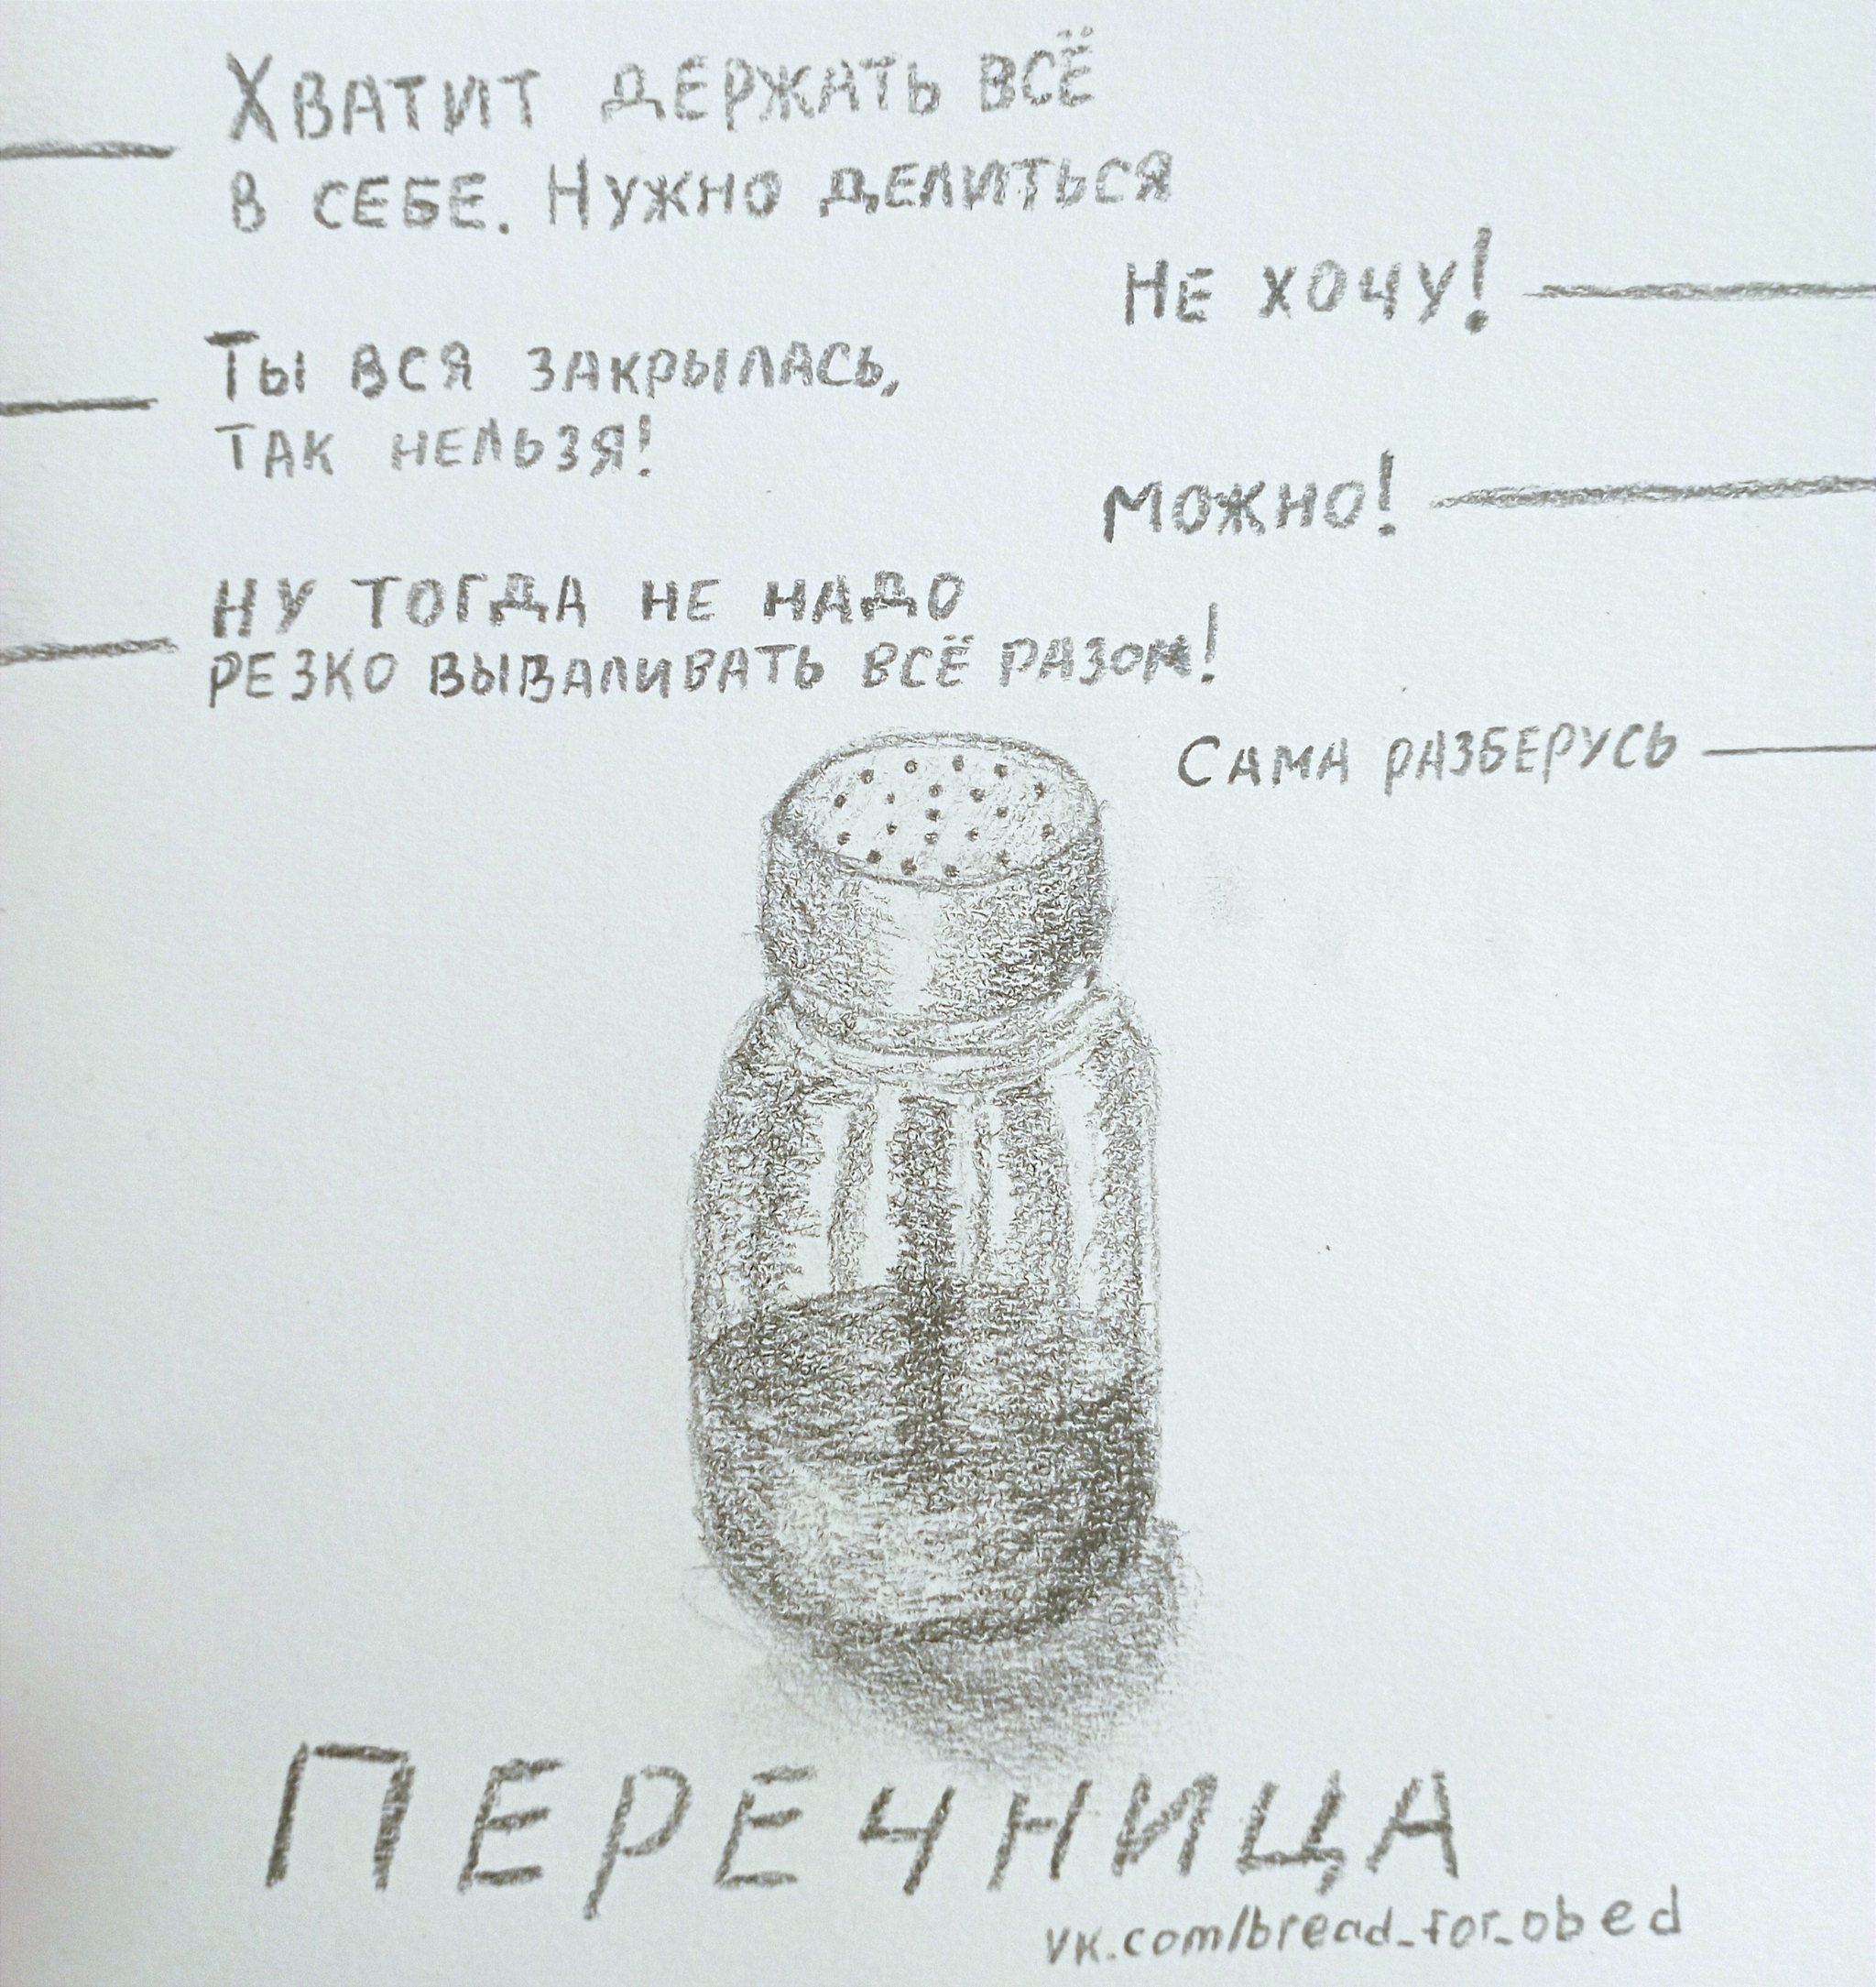 Хватит держать всё
в себе. Нужно делиться
Не хочу!
Ты вся закрылась,
так нельзя!
Можно!
Ну тогда не надо
резко вываливать всё разом!
Сама разберусь
Перечница
vk.com/bread_for_obed